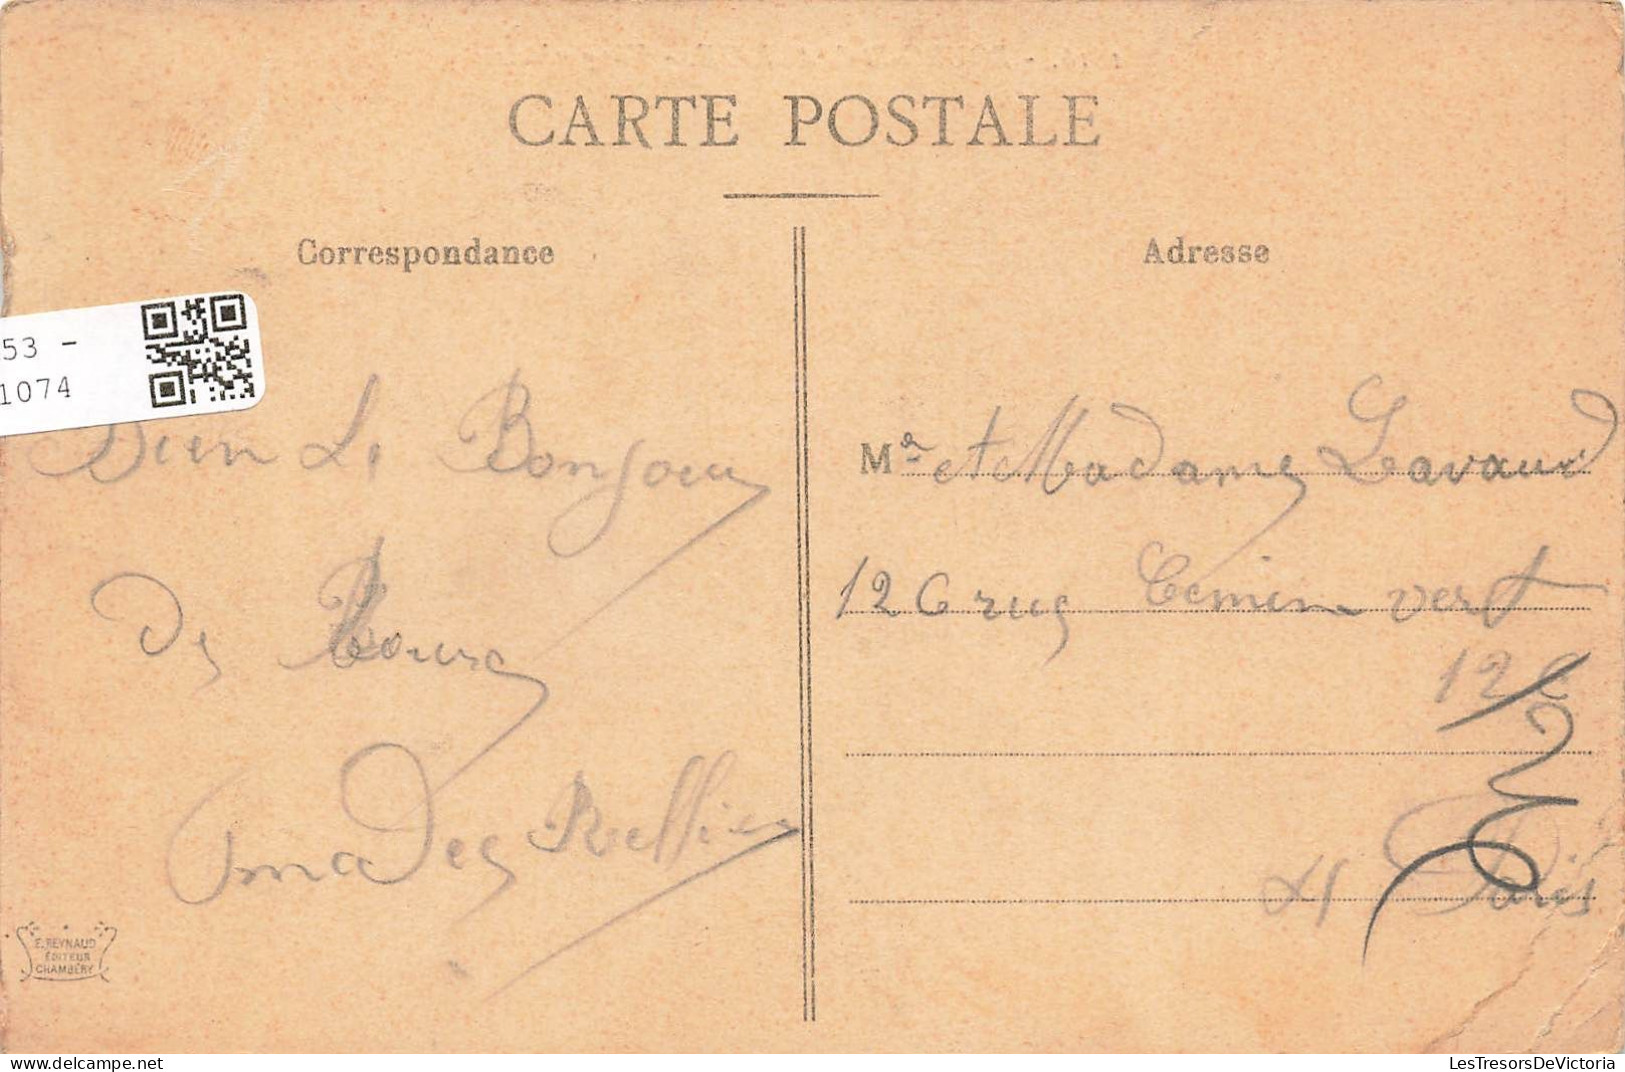 CARTE POSTALE
Correspondance
Adresse
53 -
1074
Bien Le Bonjour
De
Amadeé
Mr et Madame Lavaud
126 rue Cemin vert
12
Paris
E. REYNAUD
ÉDITEUR
CHAMBÉRY
LesTresorsDeVictoria